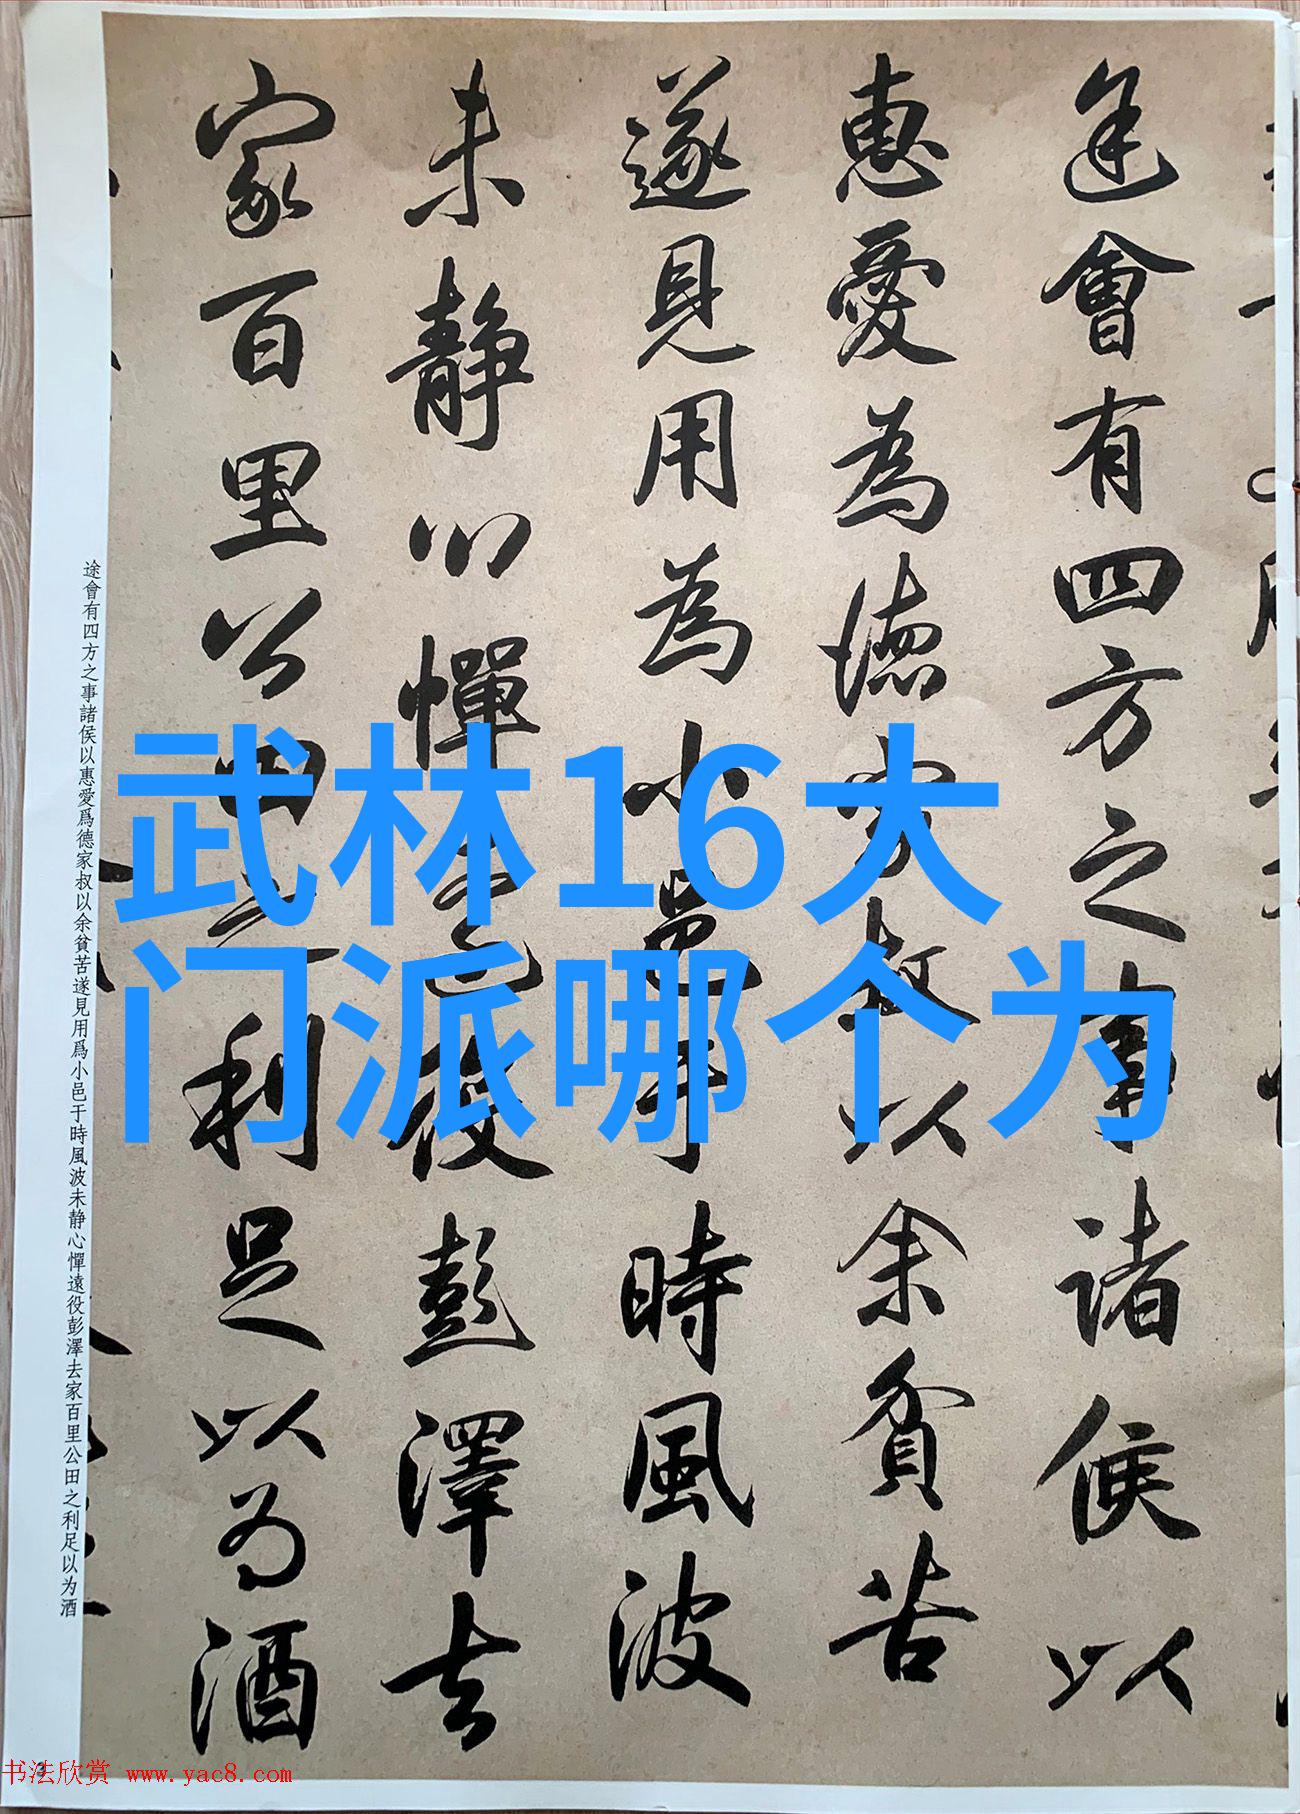 途會有四方之事諸侯以
惠愛為德家叔以余貧苦
遂見用為小邑于時風波
未静心憚遠役彭澤去
家百里公田之利足以為酒
武林16大
门派哪个为
途會有四方之事諸侯以惠愛爲德家叔以余貧苦遂見用爲小邑于時風波未静心憚遠役彭澤去家百里公田之利足以为酒
3
书法欣赏 www.yac8.com